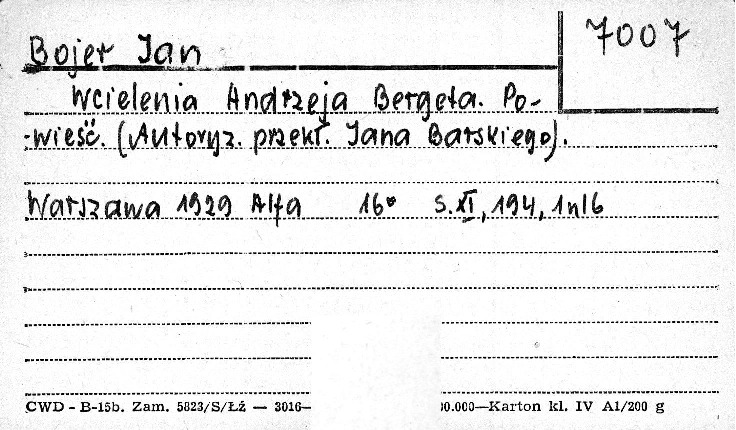 Bojer Jan
7007
Wcielenia Andrzeja Bergeta. Po-
-wieść. (Autoryz. przekł. Jana Barskiego).
Warszawa 1929 Alfa 16° s. XI, 194, 1nlb
CWD - B-15b. Zam. 5823/S/Łź — 3016— 00.000—Karton kl. IV A1/200 g